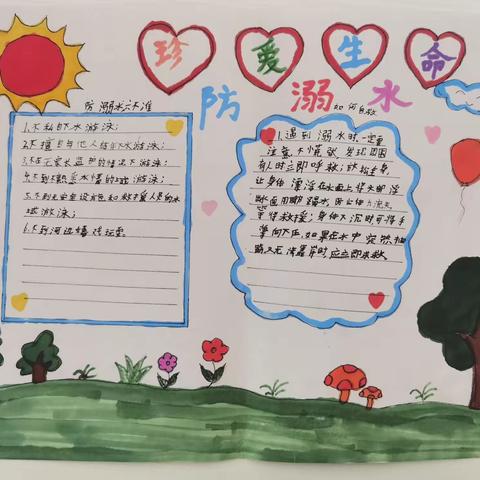 珍爱生命
防溺水
防溺水六不准
1.不私自下水游泳;
2.不擅自与他人结伴下水游泳;
3.不在无家长监护的情况下游泳;
4.不到不熟悉水情的水域游泳;
5.不到无安全设施和救援人员的水
域游泳;
6.不到河边嬉戏玩耍
如何自救
1.遇到溺水时一定要
注意不慌张 发现周围
有人时立即呼救;放松全身,
让身体漂浮在水面上
水面用脚踢水,防止体力
等待救援;身体下沉时可将手
掌向下压,如果在水中突然抽
筋又无法靠岸时,应立即求救。